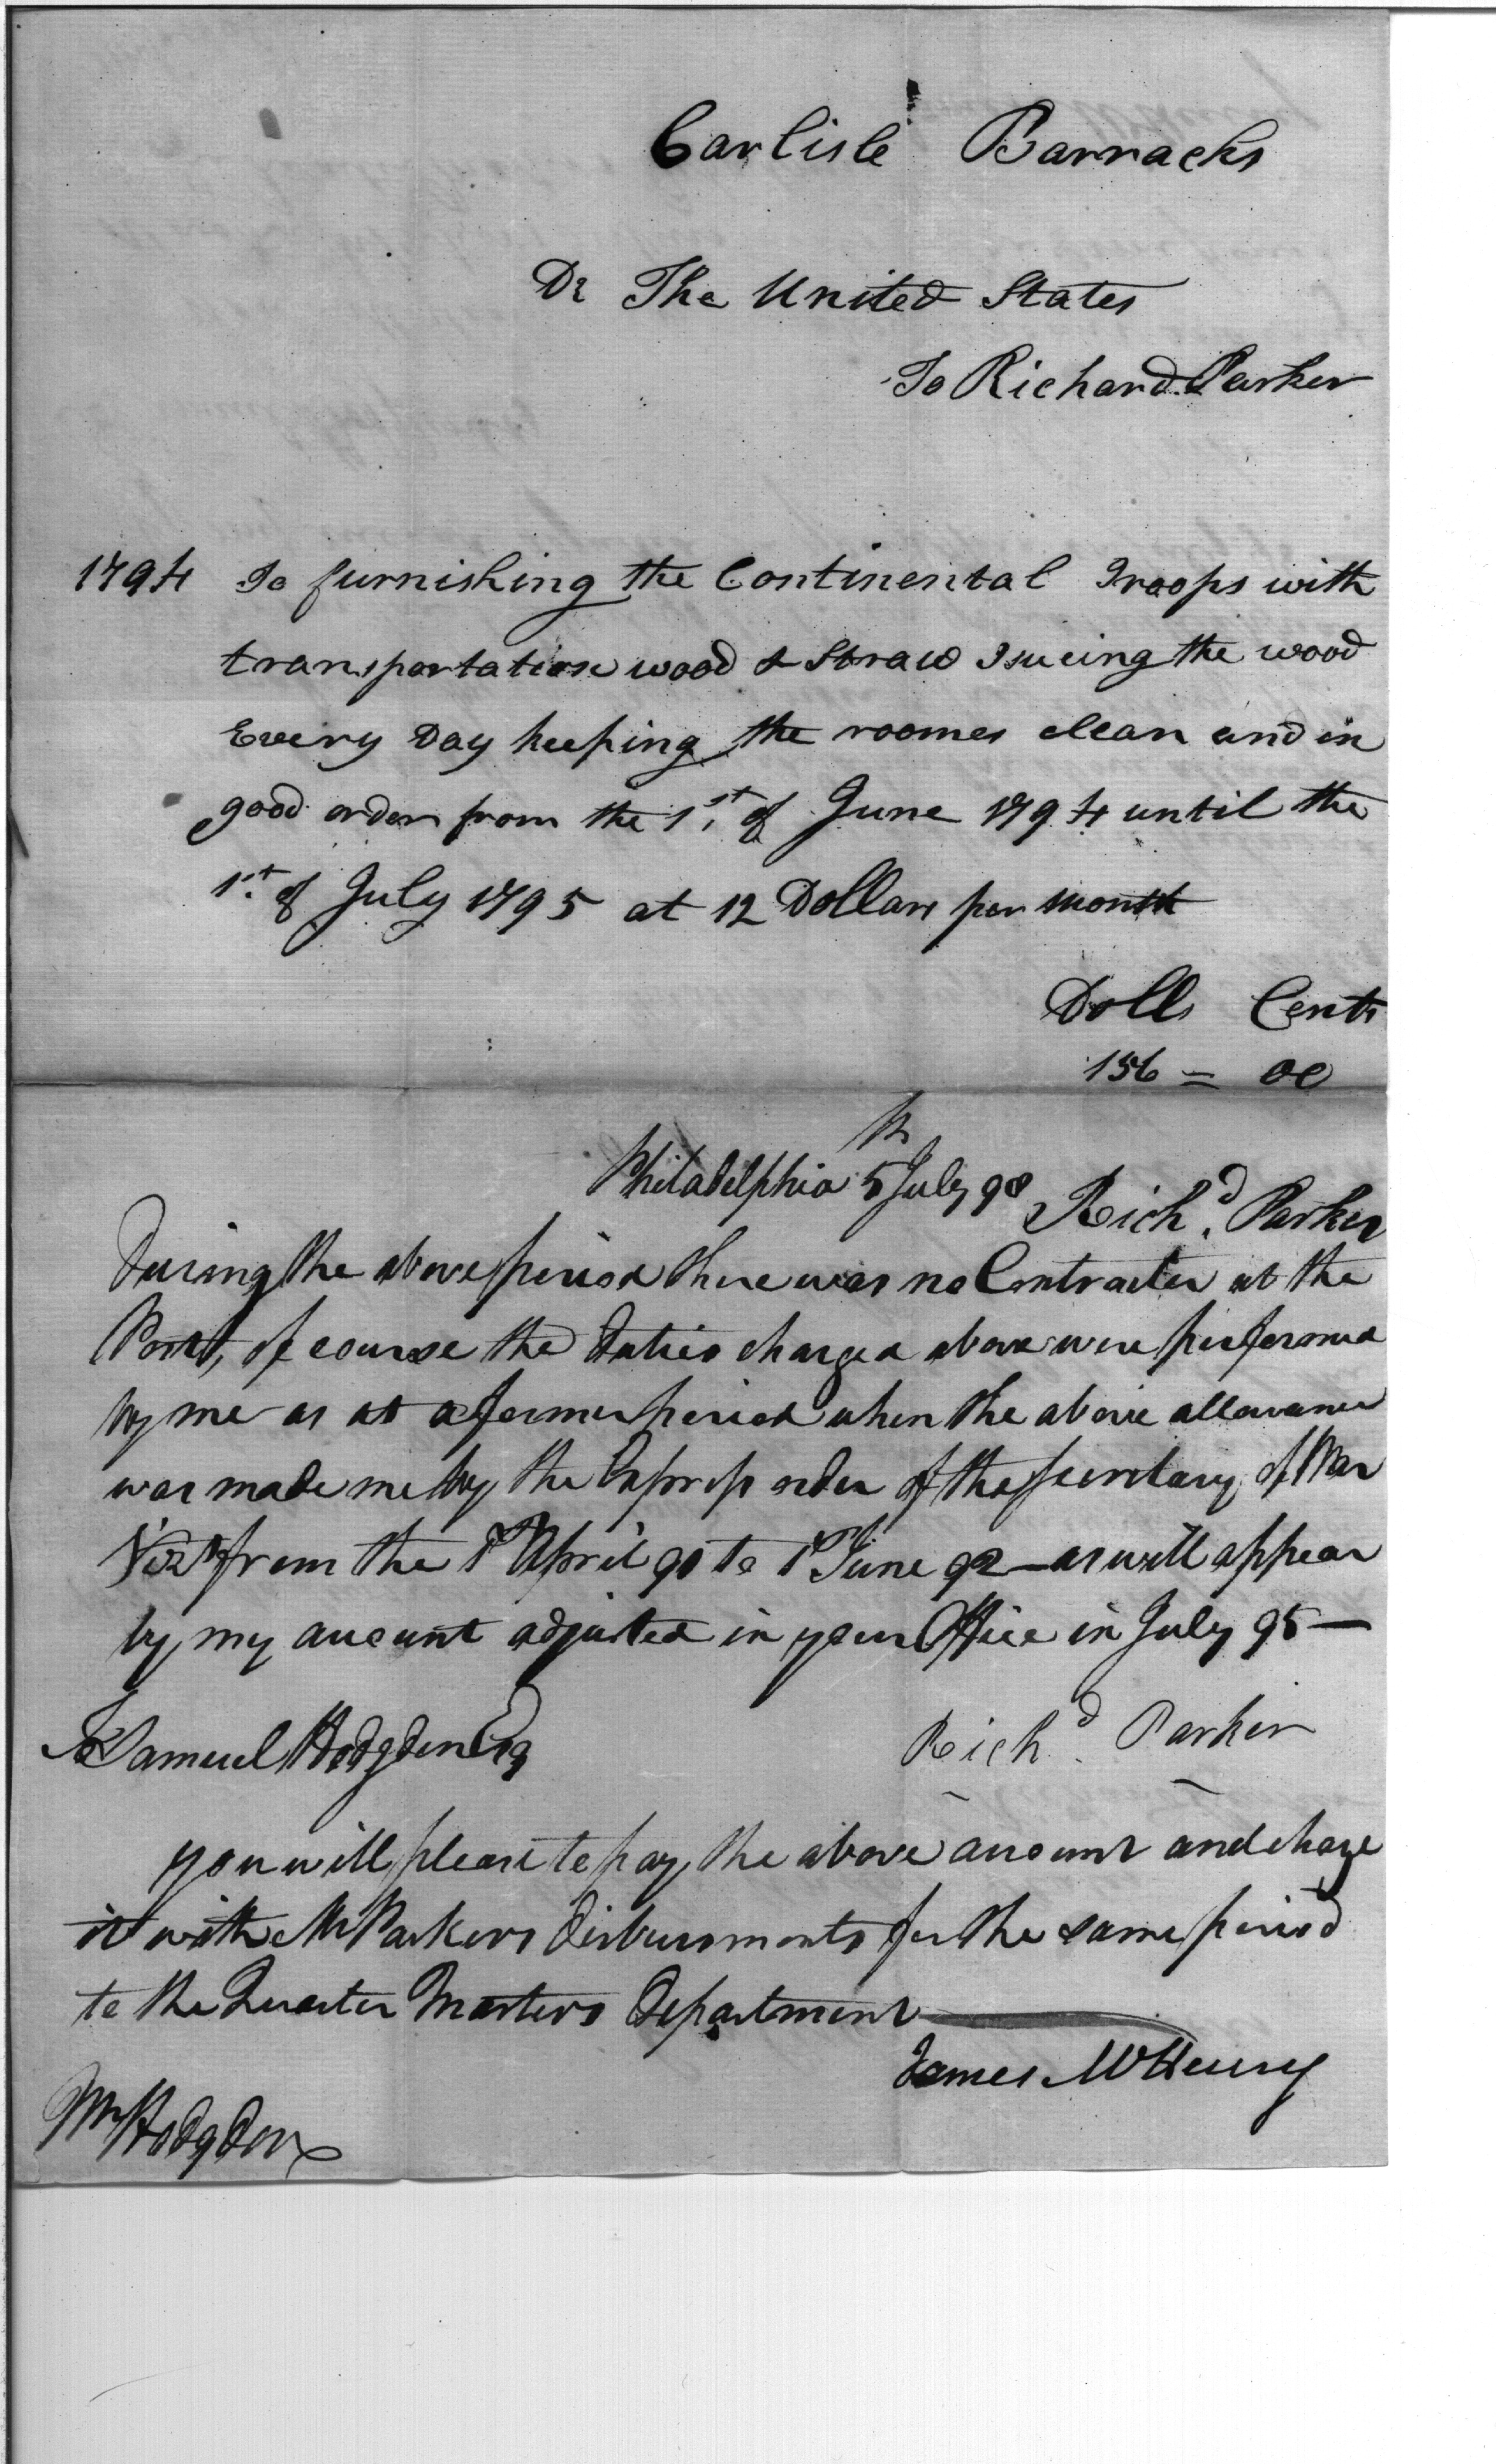 Carlisle Barracks
Dr The United States
To Richard Parker
1794 To furnishing the Continental Troops with
transportation wood & Straw Isueing the wood
Every Day keeping the roomes clean and in
good order from the 1st of June 1794 until the
1st of July 1795 at 12 Dollars per month
Dolls Cents
156 = 00
Philadelphia 5th July 98
Richd. Parker
During the above period there was no Contractor at the
Post, of course the duties charged above were performed
by me as at a former period when the above allowance
was made me by the Express order of the secretary of War
Vizt from the 1st April 91 to 1st June 92 — as will appear
by my account adjusted in your Office in July 95 —
To Samuel Hodgdon Esq
Richd. Parker
you will please to pay the above account and charge
it with Mr Parkers disbursments for the same period
to the Quarter Masters Department
James McHenry
Mr Hodgdon